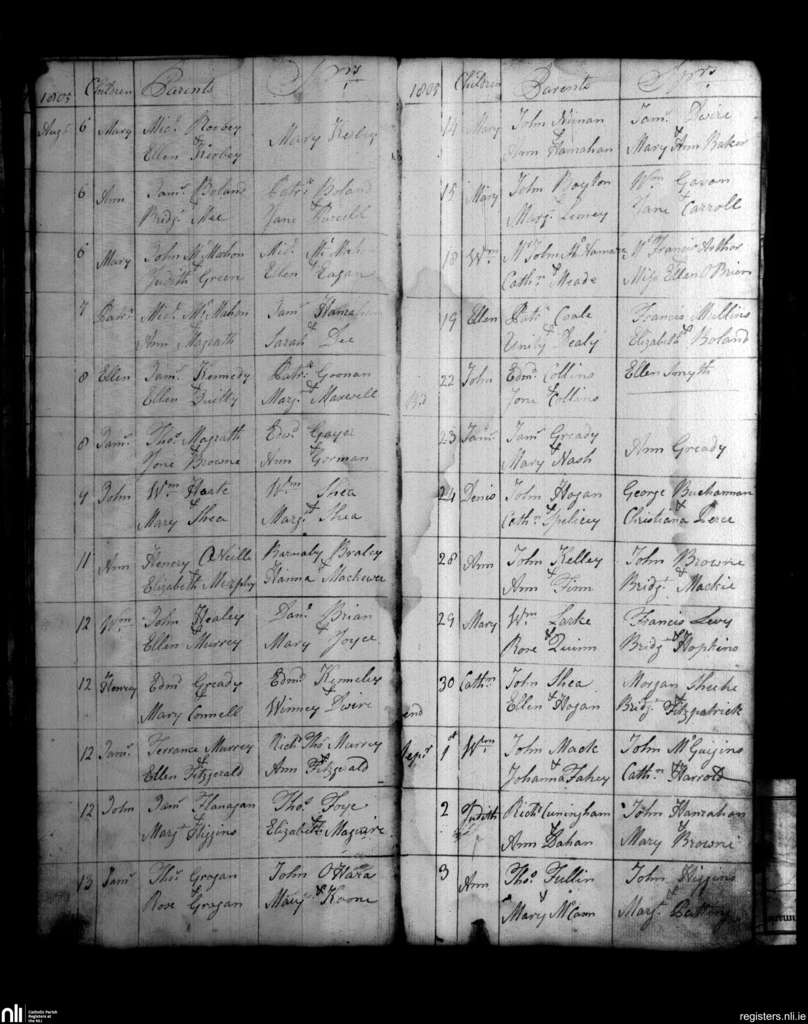 1805 Children Parents Sprs
Augt 6 Mary Michl Kerbey Mary Kerbey
Ellen Kerbey
6 Ann Jams Boland Patrk Boland
Bridgt Mee Jane &
6 Mary John McMahon Michl McMah
Judith Green Ellen Eagan
7 Michl McMahon Jams Hanrahan
Ann Magrath Sarah & Dee
8 Ellen Jams Kennedy Patrk Goonan
Ellen Margt Maxwell
8 Jams Thos Magrath Edwd
Jone Browne Ann & Gorman
9 John Wm Wm Shea
Mary Shea Margt & Shea
11 Ann Henery O'Neille Barnaby Braley
Elizabeth Murphy Hanna &
12 Wm John Healey Danl Brian
Ellen & Murrey Mary & Joyce
12 Henrey Edmd Gready Edmd Kenneley
Mary Connell Winney & Dwire
12 Jams Terrance Murrey Richd Thos Murrey
Ellen Fitzgerald Ann Fitzgerald
12 John Jams Flanagan Thos Foye
Margt Higgins Elizabeth Maguire
13 Jams Thos Grogan John OHara
Rose Grogan Margt & Koone
1805 Children Parents Sprs
14 Mary John Nunan Jams Dwire
Ann & Hanrahan Mary Ann Baker
15 Mary John Boyton Wm Gavan
Margt Jane & Carroll
18 Wm Mr John McNamara Mr Francis Arthor
Cathn & Meade Miss Ellen OBrien
19 Ellen Patk Coale Francis Mullins
Unity & Healy Elizabeth & Boland
22 John Edmd Collins Ellen Smyth
Jone & Collins
23 Jams Jams Gready Ann Gready
Mary & Nash
24 Denis John Hogan George Buchannan
Cathn Christiana
28 Ann John Kelley John Browne
Ann & Finn Bridgt & Mackie
29 Mary Wm Larke Francis Levy
Rose & Quinn Bridgt & Hopkins
30 Cathn John Shea Morgan Sheehe
end Ellen & Hogan Bridgt Fitzpatrick
Sept 1st Wm John Mack John McGugins
Johanna Fahey Cathn & Harrold
2 Judith Richd Cuningham John Hanrahan
Ann & Dahan Mary & Browne
3 Ann Thos Fullin John Higgins
Mary & McCann Margt
nli
Catholic Parish
Registers at
the NLI
registers.nli.ie